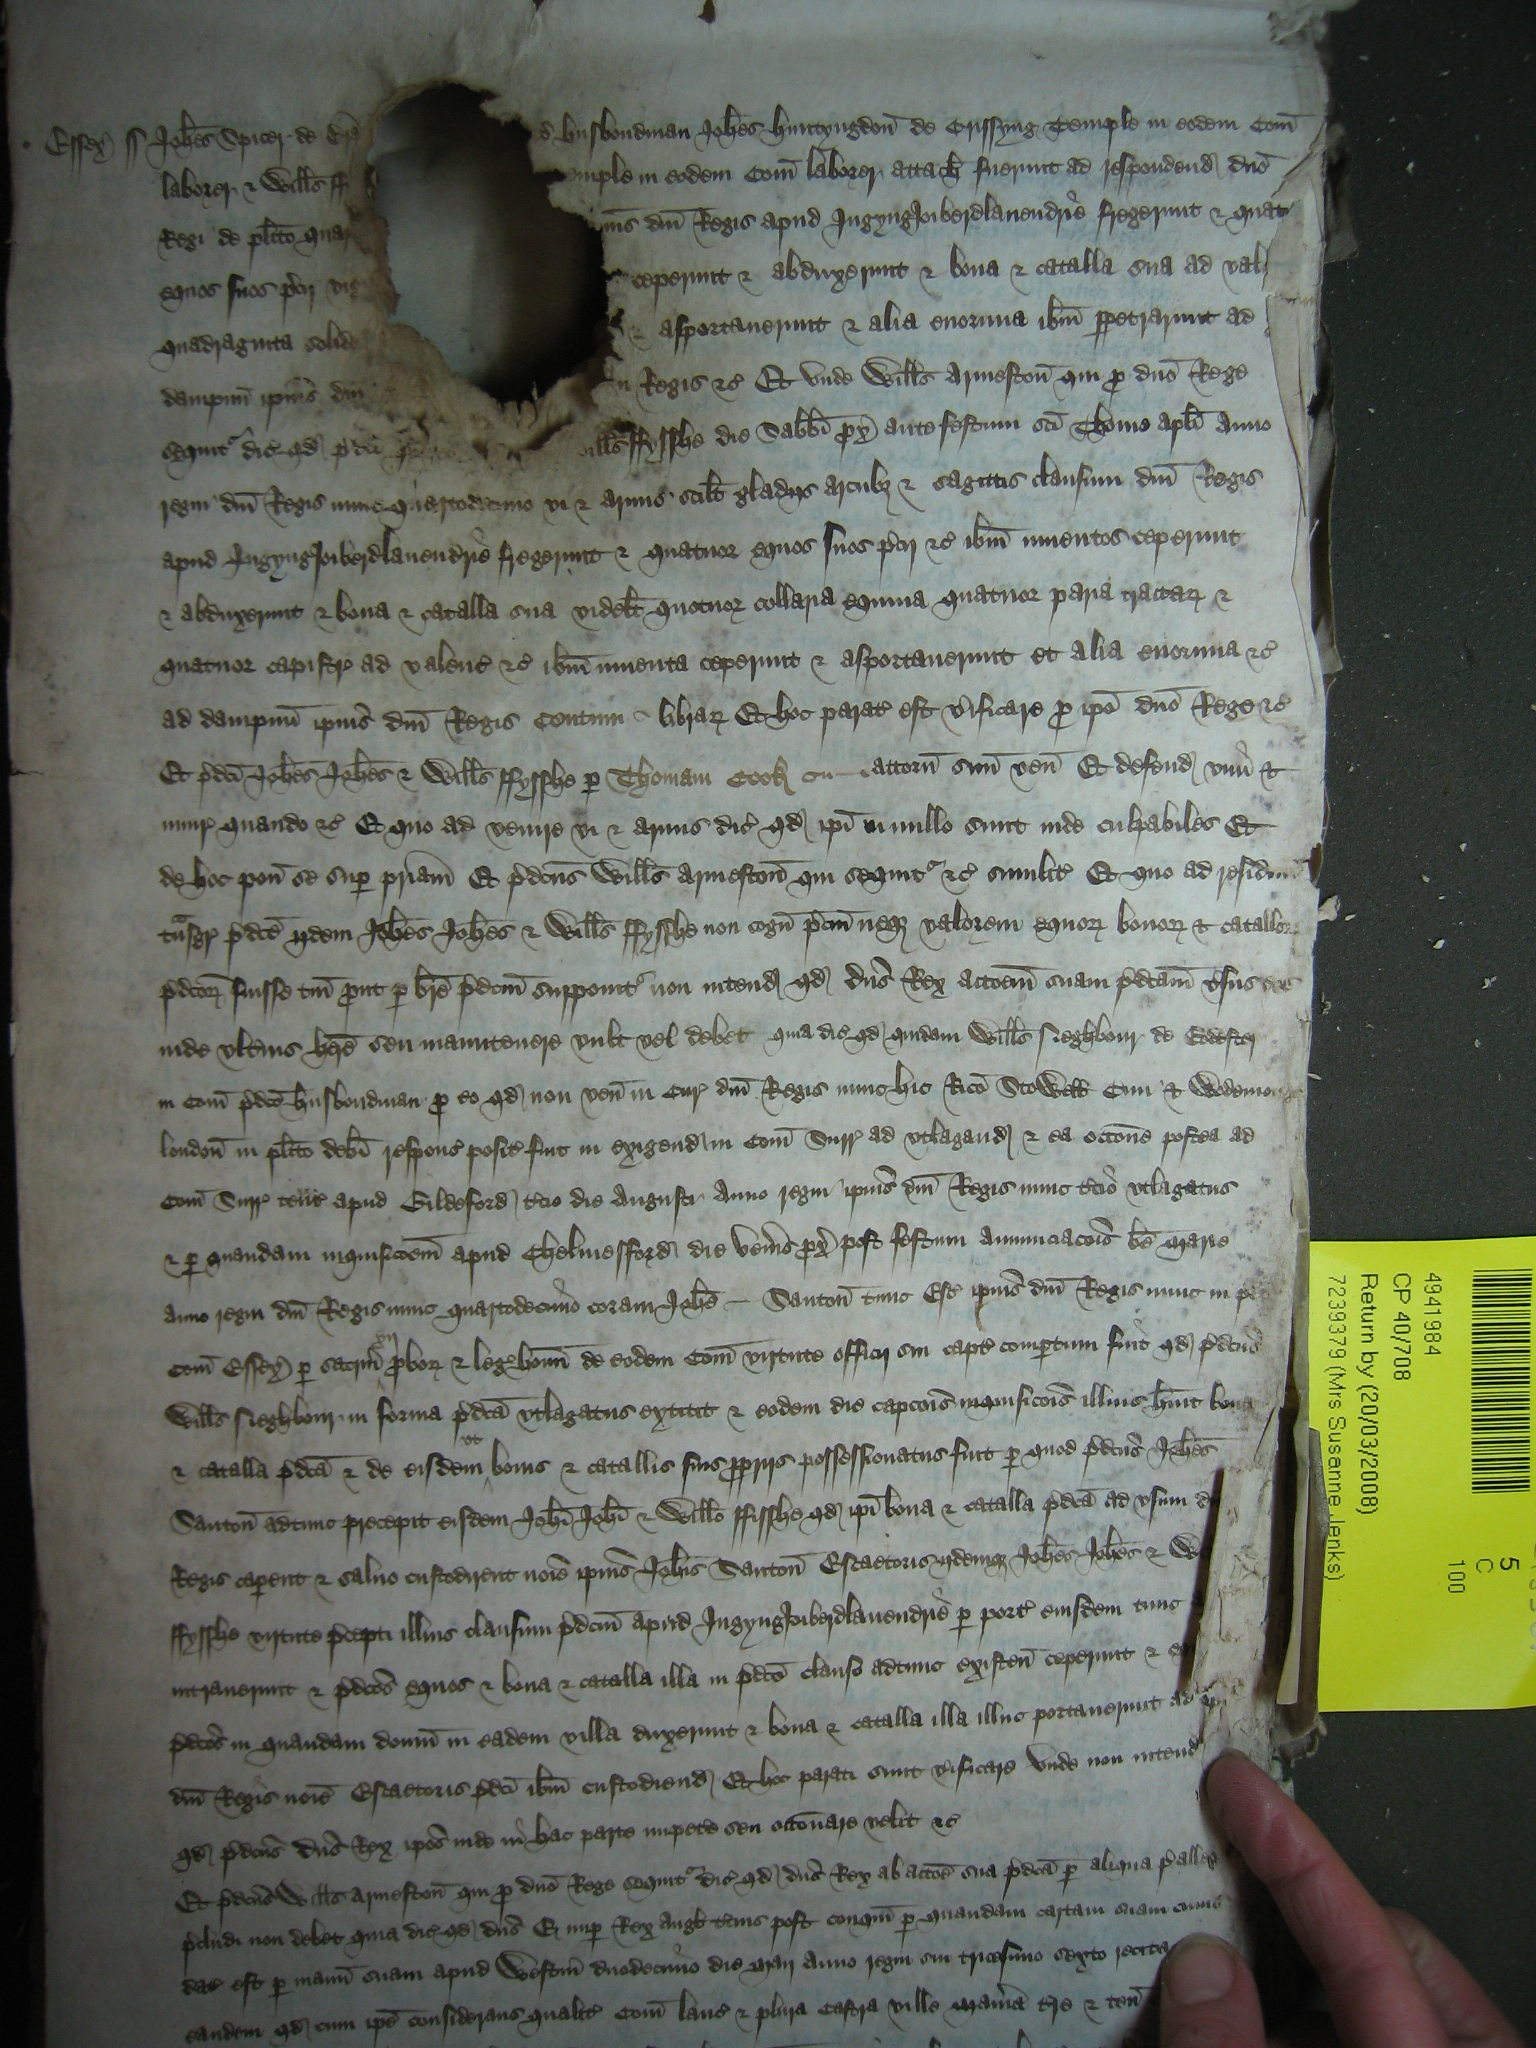 Essex ss Johes Spicer de husbondman Johes huntyngdon de Cressyng Temple in eodem Com
laborer & Wills ff mple in eodem Com laborer attach fuerunt ad respondend dno
Regi de plito quar dni Regis apud JngyngJoiberdlauendrie fregerunt & quat
equos suos pcij ceperunt & abduxerunt & bona & catalla sua ad val
quadraginta solid & asportauerunt & alia enormia ibm ppetrarunt ad
dampnu ipius dni Regis &c Et vnde Wills Armeston qui p dno Rege
sequit dic qd pdci Wills ffysshe die Sabbi px ante festum sci Thome apli Anno
regni dni Regis nunc quartodecimo vi & armis scilt gladijs arcubz & sagittis clausum dni Regis
apud JngyngJoiberdlauendrie fregerunt & quatuor equos suos pcij &c ibm inuentos ceperunt
& abduxerunt & bona & catalla sua videlt quatuor collaria equina quatuor paria tractar &
quatuor capistr ad valenc &c ibm inuenta ceperunt & asportauerunt et alia enormia &c
ad dampnu ipius dni Regis Centum librar Et hoc parat est vificare p ipo dno Rege &c
Et pdci Johes Johes & Wills ffysshe p Thomam Cook attorn suu ven Et defend vim &
iniur quando &c Et quo ad venire vi & armis dic qd ipi in nullo sunt inde culpabiles Et
de hoc pon se sup priam Et pdcus Wills Armeston qui sequit &c similit Et quo ad residuu
tnsgr pdce ijdem Johes Johes & Wills ffysshe non cogn pcm neqz valorem equor bonor & catallor
pdcor fuisse tm put p bre pdcm supponit non intend qd dns Rex accoem suam pdcam vsus eos
inde vltius here seu manutenere vult vel debet quia dic qd quidam Wills Neghbour de
in Com pdco husbondman p eo qd non ven in Cur dni Regis nunc hic Rico Stowell Ciui &
london in plito debi respons posit fuit in exigend in Com Surr ad vtlagand & ea occone postea ad
Com Surr tent apud Gildeford tcio die Augusti Anno regni ipius dni Regis nunc tcio vtlagatus
& p quandam inquisicoem apud Chelmesford die venis px post festum Annunciacois be Marie
anno regni dni Regis nunc quartodecimo coram Johe Santon tunc Esc ipius dni Regis nunc in
Com Essex p sacrm xij pbor & leg hoim de eodem Com virtute officij sui capt comptum fuit qd pdcus
Wills Neghbour in forma pdca vtlagatus extitit & eodem die capcois inquisicois illius huit bona
& catalla pdca & de eisdem vt bonis & catallis suis pprijs possessionatus fuit p quod pdcus Johes
Santon adtunc precepit eisdem Johi Johi & Willo ffisshe qd ipi bona & catalla pdca ad vsum
Regis caperent & saluo custodirent noie ipius Johis Santon Escaetoris ijdemqz Johes Johes &
ffysshe virtute pcepti illius clausum pdcm apud JngyngJoiberdlauendrie p port eiusdem tunc
intrauerunt & pdcos equos & bona & catalla illa in pdco clauso adtunc existen ceperunt &
pdcos in quandam domu in eadem villa duxerunt & bona & catalla illa illuc portauerunt ad
dni Regis noie Escaetoris pdci ibm custodiend Et hoc parati sunt vificare vnde non intend
qd pdcus dns Rex ipos inde in hac parte impete seu occonare velit &c
Et pdcus Wills Armeston qui p dno Rege sequit dic qd dns Rex ab accoe sua pdca p aliqua p alleg
pcludi non debet quia dic qd dns E nup Rex Angl tcius post conqm p quandam cartam suam cuius
dat est p manu suam apud Westm duodecimo die Maij Anno regni sui tricesimo sexto
eandem qd cum ipe considerans qualit Com lanc & plura Castra ville Mania tre & ten
4941984
CP 40/708
Return by (20/03/2008)
7239379 (Mrs Susanne Jenks)
5
C
100